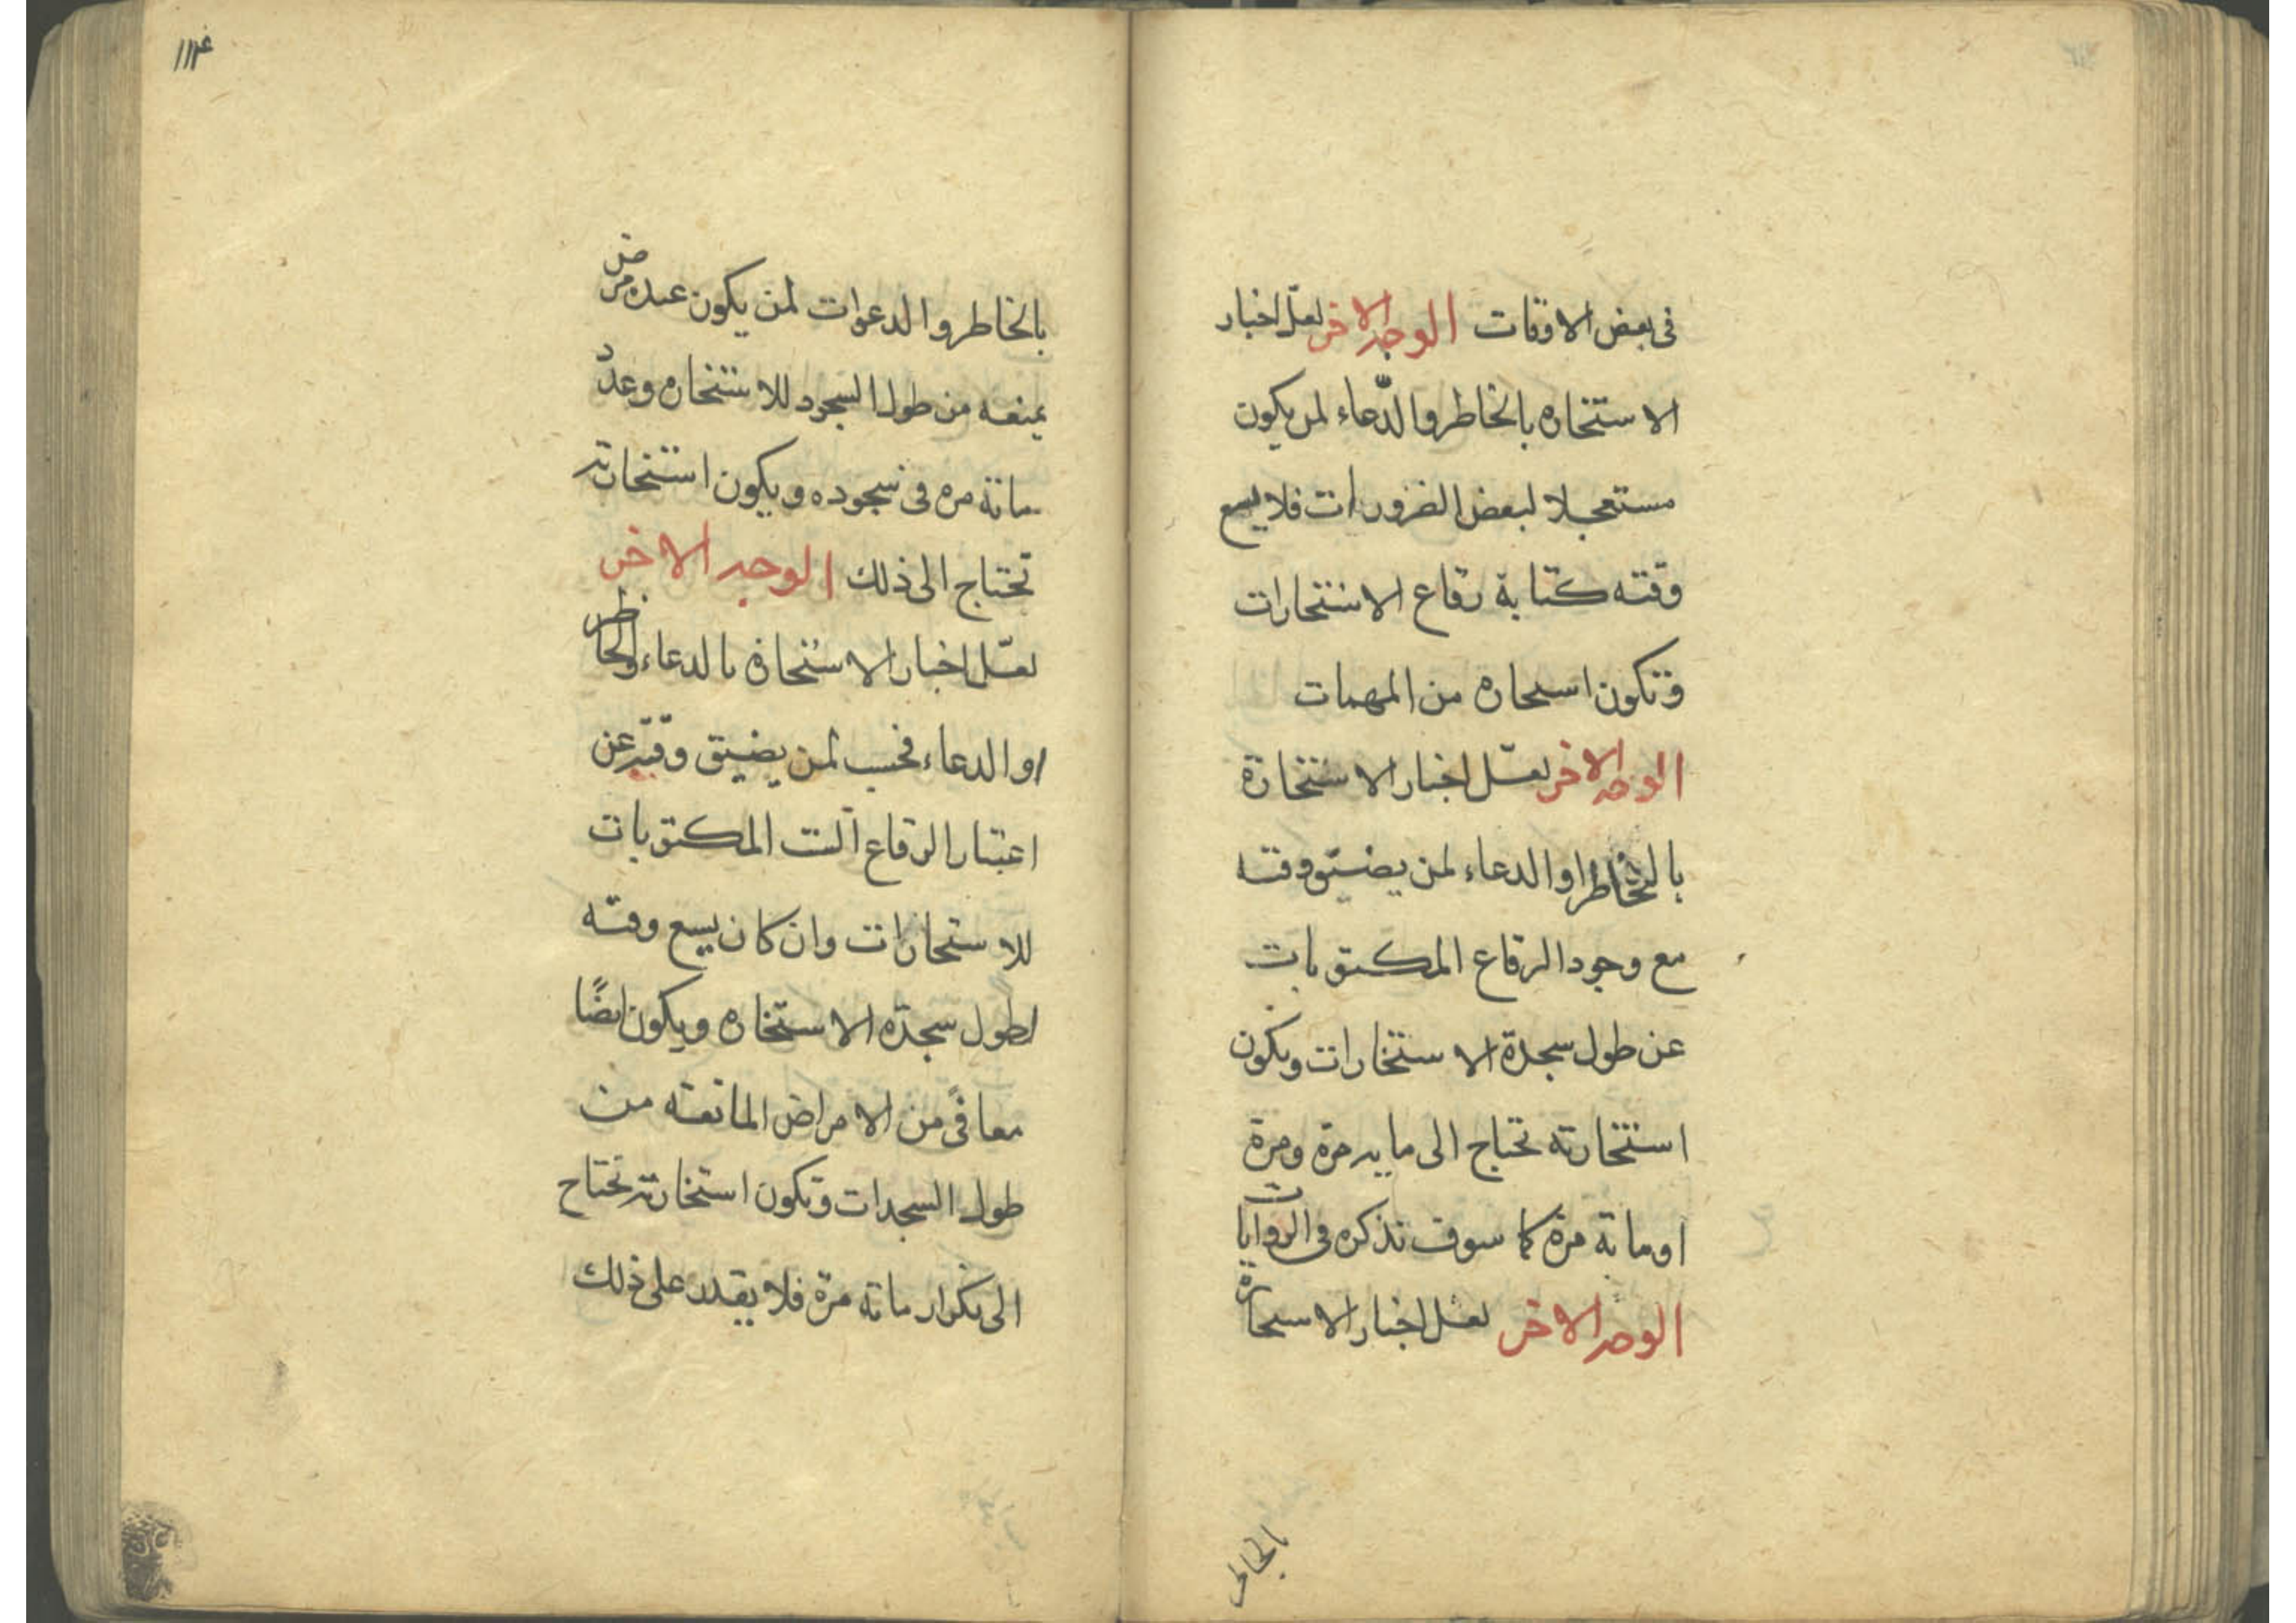 فى بعض الاوقات الوجه الاخر لعلّ اخبار
الاستخاره بالخاطر والدّعاء لمن يكون
مستعجلا لبعض الضرورات فلا يسع
وقته كتابة رقاع الاستخارات
وتكون استخاره من المهمات
الوجه الاخر لعلّ اخبار الاستخارة
بالخاطر او الدعاء لمن يضيق وقته
مع وجود الرقاع المكتوبات
عن طول سجدة الاستخارات ويكون
استخارته تحتاج الى مايه مرة ومرة
او مائة مرة كما سوف نذكره فى الروايات
الوجه الاخر لعل اخبار الاستخارة
بالخاطر
۱۱۴
بالخاطر والدعوات لمن يكون عنده مرض
يمنعه من طول السجود للاستخاره وعدد
مائة مره فى سجوده ويكون استخارته
تحتاج الى ذلك الوجه الاخر
لعلّ اخبار الاستخارة بالدعاء والخاطر
او الدعاء فحسب لمن يضيق وقته عن
اعتبار الرقاع الست المكتوبات
للاستخارات وان كان يسع وقته
لطول سجدة الاستخاره ويكون ايضًا
معافًى من الامراض المانعه من
طول السجدات وتكون استخارته تحتاج
الى تكرار مائة مرّة فلا يقدر على ذلك